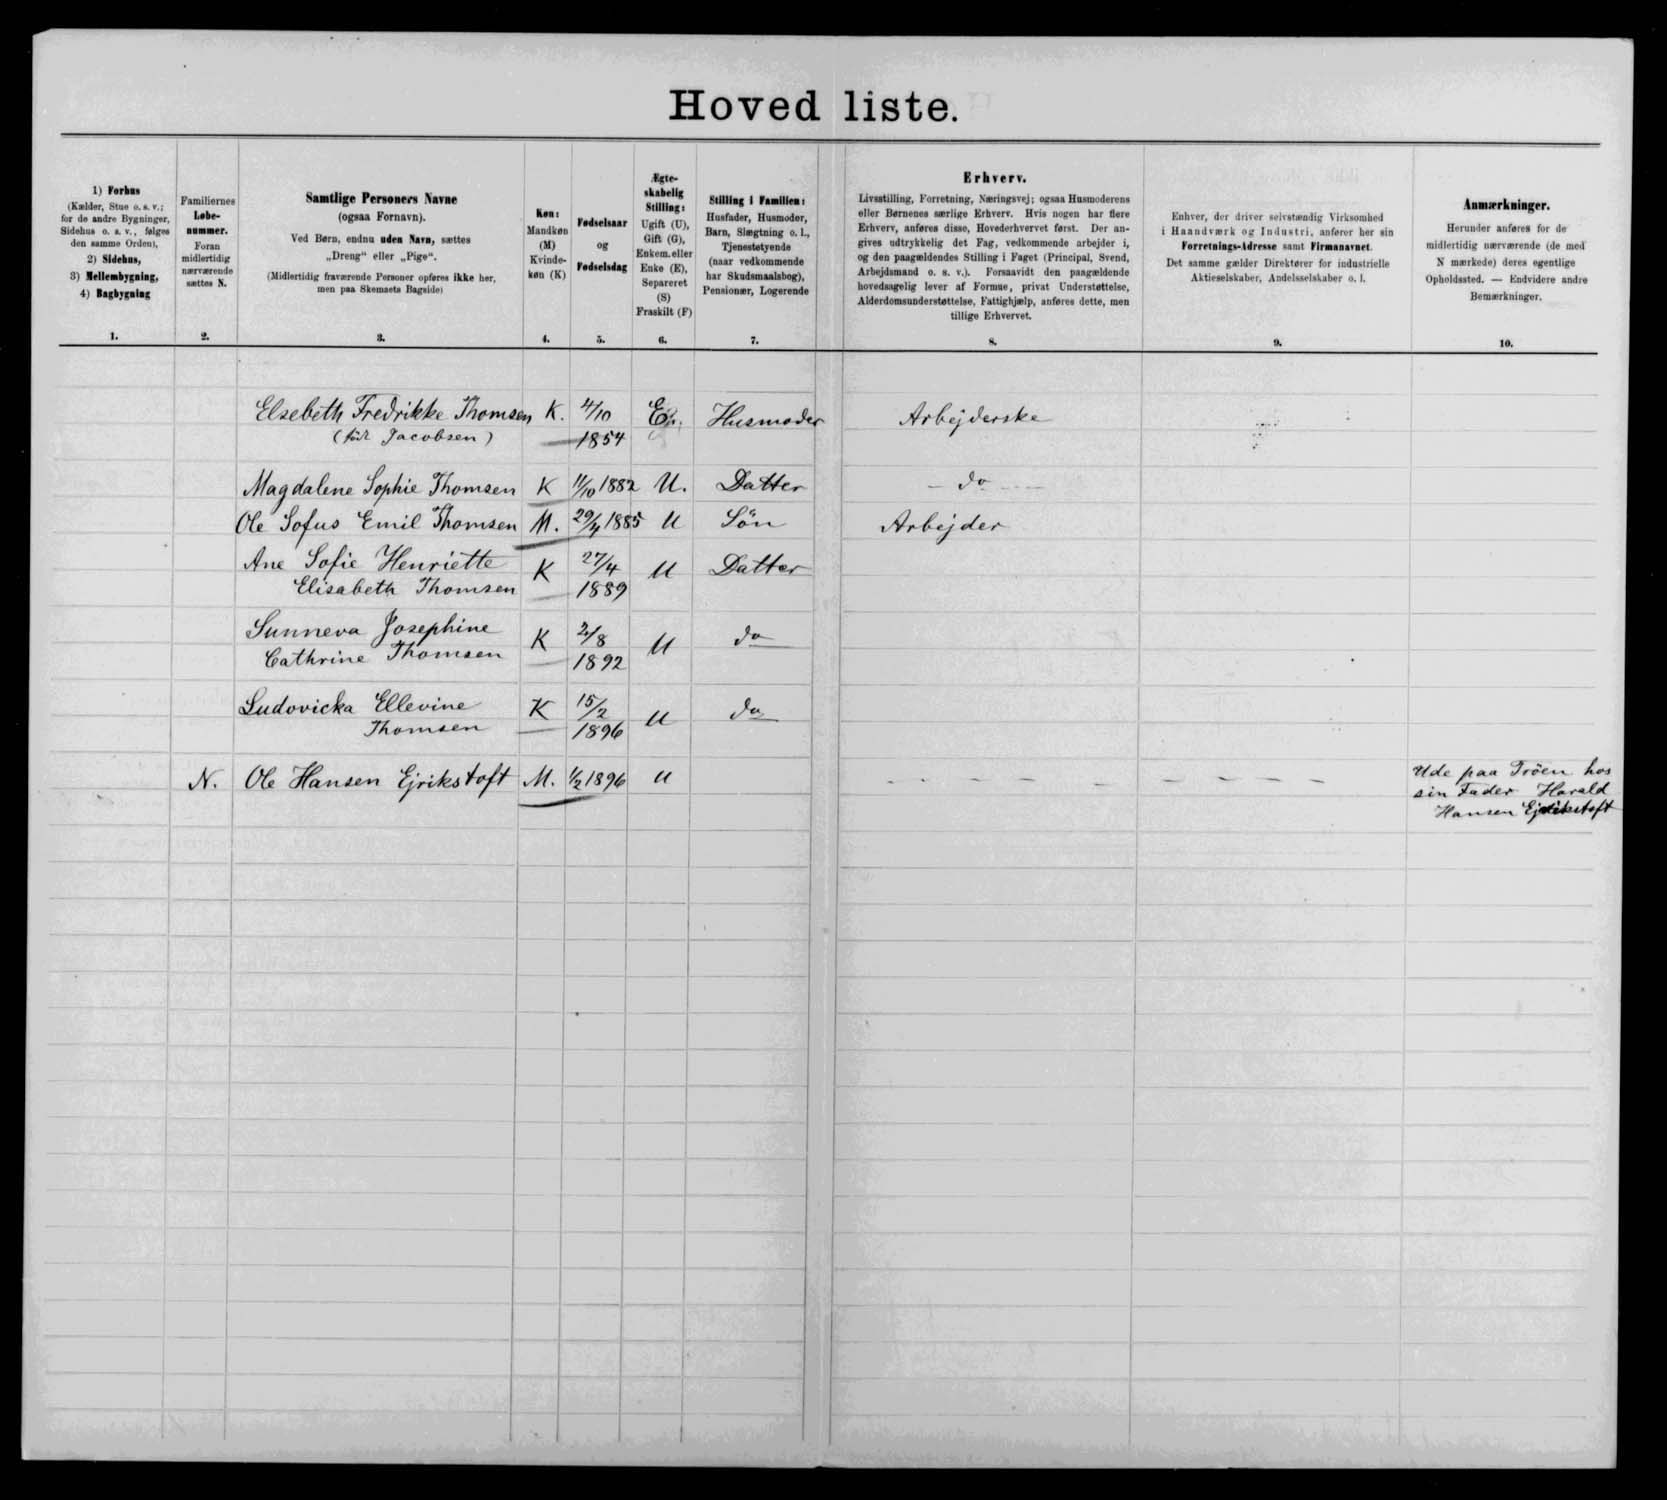 Hoved liste.
1) Forhus
(Kælder, Stue o. s. v.;
for de andre Bygninger,
Sidehus o. s. v., følges
den samme Orden),
2) Sidehus,
3) Mellembygning,
4) Bagbygning
1.
Familiernes
Løbe-
nummer.
Foran
midlertidig
nærværende
sættes N.
2.
Samtlige Personers Navne
(ogsaa Fornavn).
Ved Børn, endnu uden Navn, sættes
„Dreng“ eller „Pige“.
(Midlertidig fraværende Personer opføres ikke her,
men paa Skemaets Bagside)
3.
Køn:
Mandkøn
(M)
Kvinde-
køn (K)
4.
Fødselsaar
og
Fødselsdag
5.
Ægte-
skabelig
Stilling:
Ugift (U),
Gift (G),
Enkem. eller
Enke (E),
Separeret
(S)
Fraskilt (F)
6.
Stilling i Familien:
Husfader, Husmoder,
Barn, Slægtning o. l.,
Tjenestetyende
(naar vedkommende
har Skudsmaalsbog),
Pensionær, Logerende
7.
Erhverv.
Livsstilling, Forretning, Næringsvej; ogsaa Husmoderens
eller Børnenes særlige Erhverv. Hvis nogen har flere
Erhverv, anføres disse, Hovederhvervet først. Der an-
gives udtrykkelig det Fag, vedkommende arbejder i,
og den paagældendes Stilling i Faget (Principal, Svend,
Arbejdsmand o. s. v.). Forsaavidt den paagældende
hovedsagelig lever af Formue, privat Understøttelse,
Alderdomsunderstøttelse, Fattighjælp, anføres dette, men
tillige Erhvervet.
8.
Enhver, der driver selvstændig Virksomhed
i Haandværk og Industri, anfører her sin
Forretnings-Adresse samt Firmanavnet.
Det samme gælder Direktører for industrielle
Aktieselskaber, Andelsselskaber o. l.
9.
Anmærkninger.
Herunder anføres for de
midlertidig nærværende (de med
N mærkede) deres egentlige
Opholdssted. — Endvidere andre
Bemærkninger.
10.
Elsebeth Fredrikke Thomsen K. 4/10 Husmoder Arbejderske
(föd Jacobsen) 1854
Magdalene Sophie Thomsen K 11/10 1882 U. Datter – do –
Ole Sofus Emil Thomsen M. 29/4 1885 U Sön Arbejder
Ane Sofie Henriette K 27/4 U Datter
Elisabeth Thomsen 1889
Sunneva Josephine K 2/8 U do
Cathrine Thomsen 1892
Ludovicka Ellevine K 15/2 U do
Thomsen 1896
N. Ole Hansen Ejrikstoft M. 1/2 1896 U – – – – – – – – Ude paa Tröen hos
sin Fader Harald
Hansen Ejrikstoft